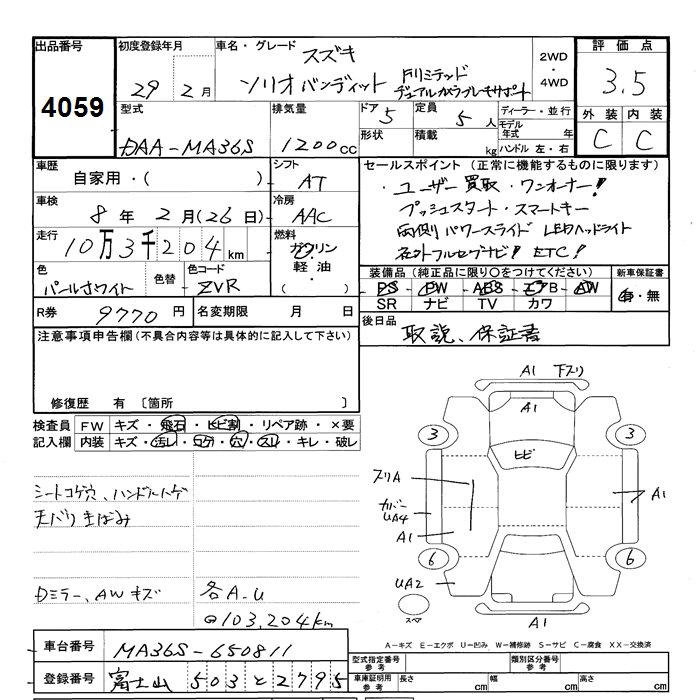 出品番号
4059
初度登録年月
29年 2月
車名・グレード
スズキ
ソリオバンディット
Fリミテッド
デュアルカメラブレーキサポート
2WD
・
4WD
評価点
3.5
外装 内装
C C
型式
DAA-MA36S
排気量
1200cc
ドア 5
形状
定員 5人
積載 kg
ディーラー・並行
モデル年式 年
ハンドル 左・右
車歴
自家用・( )
シフト
AT
車検
8年 2月(26日)
冷房
AAC
走行
10万3千204km
燃料
ガソリン
軽油・
( )
色
パールホワイト
色替
色コード
ZVR
R券 9770円
名変期限 月 日
セールスポイント(正常に機能するものに限ります)
・ユーザー買取・ワンオーナー!
プッシュスタート・スマートキー
両側パワースライド LEDヘッドライト
社外フルセグナビ! ETC!
装備品(純正品に限り○をつけてください)
PS PW ABS エアB AW
SR ナビ TV カワ
新車保証書
有・無
後日品
取説、保証書
注意事項申告欄(不具合内容等は具体的に記入して下さい)
修復歴 有〔箇所 〕
検査員記入欄
FW キズ・飛石・ヒビ割・リペア跡・×要
内装 キズ・汚レ・コゲ・穴・スレ・キレ・破レ
シートコゲ穴、ハンドルハゲ
天バリきばみ
Dミラー、AWキズ
各A-U
103,204km
A1 下スリ
A1
3
3
ヒビ
スリA
カバー
UA4
A1
A1
6
6
UA2
スペア
A1
A-キズ E-エクボ U-凹み W-補修跡 S-サビ C-腐食 XX-交換済
車台番号
MA36S-650811
登録番号
富士山 503と2795
型式指定番号
参考
類別区分番号
参考
車庫証明用
参考
長さ cm
幅 cm
高さ cm